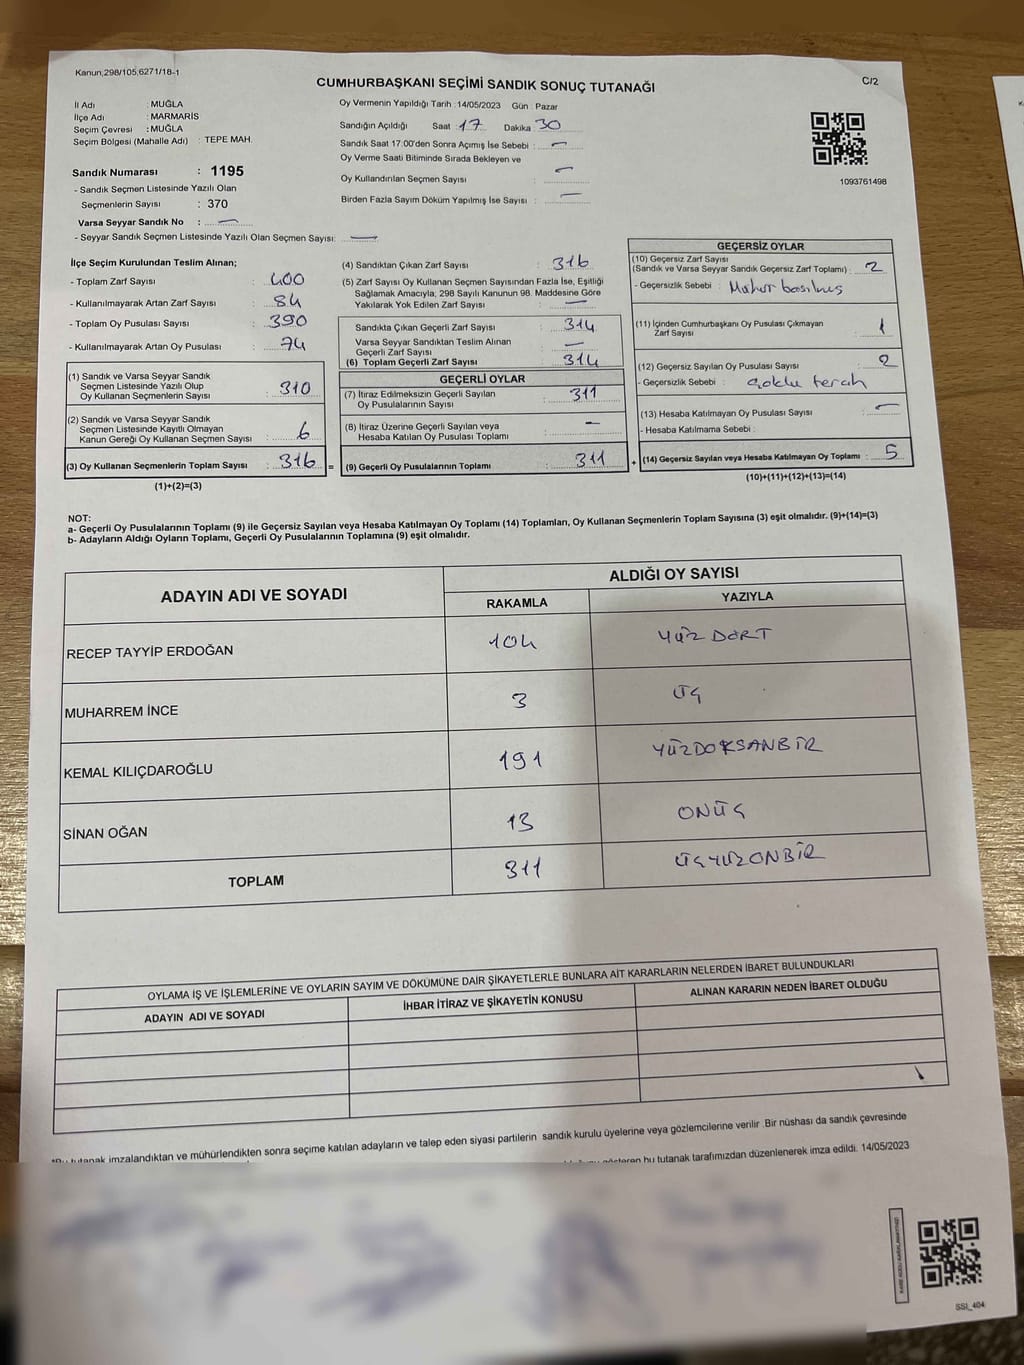 Kanun,298/105,6271/18-1
CUMHURBAŞKANI SEÇİMİ SANDIK SONUÇ TUTANAĞI
C/2
İl Adı : MUĞLA
İlçe Adı : MARMARİS
Seçim Çevresi : MUĞLA
Seçim Bölgesi (Mahalle Adı) : TEPE MAH.
Sandık Numarası : 1195
- Sandık Seçmen Listesinde Yazılı Olan
Seçmenlerin Sayısı : 370
Varsa Seyyar Sandık No : —
- Seyyar Sandık Seçmen Listesinde Yazılı Olan Seçmen Sayısı: —
Oy Vermenin Yapıldığı Tarih :14/05/2023 Gün : Pazar
Sandığın Açıldığı Saat : 17 Dakika : 30
Sandık Saat 17:00'den Sonra Açımış İse Sebebi : —
Oy Verme Saati Bitiminde Sırada Bekleyen ve
Oy Kullandırılan Seçmen Sayısı : —
Birden Fazla Sayım Döküm Yapılmış İse Sayısı : —
1093761498
İlçe Seçim Kurulundan Teslim Alınan;
- Toplam Zarf Sayısı : 400
- Kullanılmayarak Artan Zarf Sayısı : 84
- Toplam Oy Pusulası Sayısı : 390
- Kullanılmayarak Artan Oy Pusulası : 74
(1) Sandık ve Varsa Seyyar Sandık
Seçmen Listesinde Yazılı Olup
Oy Kullanan Seçmenlerin Sayısı : 310
(2) Sandık ve Varsa Seyyar Sandık
Seçmen Listesinde Kayıtlı Olmayan
Kanun Gereği Oy Kullanan Seçmen Sayısı : 6
(3) Oy Kullanan Seçmenlerin Toplam Sayısı : 316
(1)+(2)=(3)
(4) Sandıktan Çıkan Zarf Sayısı : 316
(5) Zarf Sayısı Oy Kullanan Seçmen Sayısından Fazla İse, Eşitliği
Sağlamak Amacıyla, 298 Sayılı Kanunun 98. Maddesine Göre
Yakılarak Yok Edilen Zarf Sayısı : —
Sandıkta Çıkan Geçerli Zarf Sayısı : 314
Varsa Seyyar Sandıktan Teslim Alınan
Geçerli Zarf Sayısı : —
(6) Toplam Geçerli Zarf Sayısı : 314
GEÇERLİ OYLAR
(7) İtiraz Edilmeksizin Geçerli Sayılan
Oy Pusulalarının Sayısı : 311
(8) İtiraz Üzerine Geçerli Sayılan veya
Hesaba Katılan Oy Pusulası Toplamı : —
= (9) Geçerli Oy Pusulalarının Toplamı : 311
GEÇERSİZ OYLAR
(10) Geçersiz Zarf Sayısı
(Sandık ve Varsa Seyyar Sandık Geçersiz Zarf Toplamı) : 2
- Geçersizlik Sebebi : Mühür basılmış
(11) İçinden Cumhurbaşkanı Oy Pusulası Çıkmayan
Zarf Sayısı : 1
(12) Geçersiz Sayılan Oy Pusulası Sayısı : 2
- Geçersizlik Sebebi : çoklu tercih
(13) Hesaba Katılmayan Oy Pusulası Sayısı : —
- Hesaba Katılmama Sebebi :
+ (14) Geçersiz Sayılan veya Hesaba Katılmayan Oy Toplamı : 5
(10)+(11)+(12)+(13)=(14)
NOT:
a- Geçerli Oy Pusulalarının Toplamı (9) ile Geçersiz Sayılan veya Hesaba Katılmayan Oy Toplamı (14) Toplamları, Oy Kullanan Seçmenlerin Toplam Sayısına (3) eşit olmalıdır. (9)+(14)=(3)
b- Adayların Aldığı Oyların Toplamı, Geçerli Oy Pusulalarının Toplamına (9) eşit olmalıdır.
ADAYIN ADI VE SOYADI
ALDIĞI OY SAYISI
RAKAMLA YAZIYLA
RECEP TAYYİP ERDOĞAN 104 YÜZ DÖRT
MUHARREM İNCE 3 ÜÇ
KEMAL KILIÇDAROĞLU 191 YÜZDOKSANBİR
SİNAN OĞAN 13 ONÜÇ
TOPLAM 311 ÜÇYÜZONBİR
OYLAMA İŞ VE İŞLEMLERİNE VE OYLARIN SAYIM VE DÖKÜMÜNE DAİR ŞİKAYETLERLE BUNLARA AİT KARARLARIN NELERDEN İBARET BULUNDUKLARI
ADAYIN ADI VE SOYADI İHBAR İTİRAZ VE ŞİKAYETİN KONUSU ALINAN KARARIN NEDEN İBARET OLDUĞU
*Bu tutanak imzalandıktan ve mühürlendikten sonra seçime katılan adayların ve talep eden siyasi partilerin sandık kurulu üyelerine veya gözlemcilerine verilir. Bir nüshası da sandık çevresinde
gösteren bu tutanak tarafımızdan düzenlenerek imza edildi. 14/05/2023
SSI_404